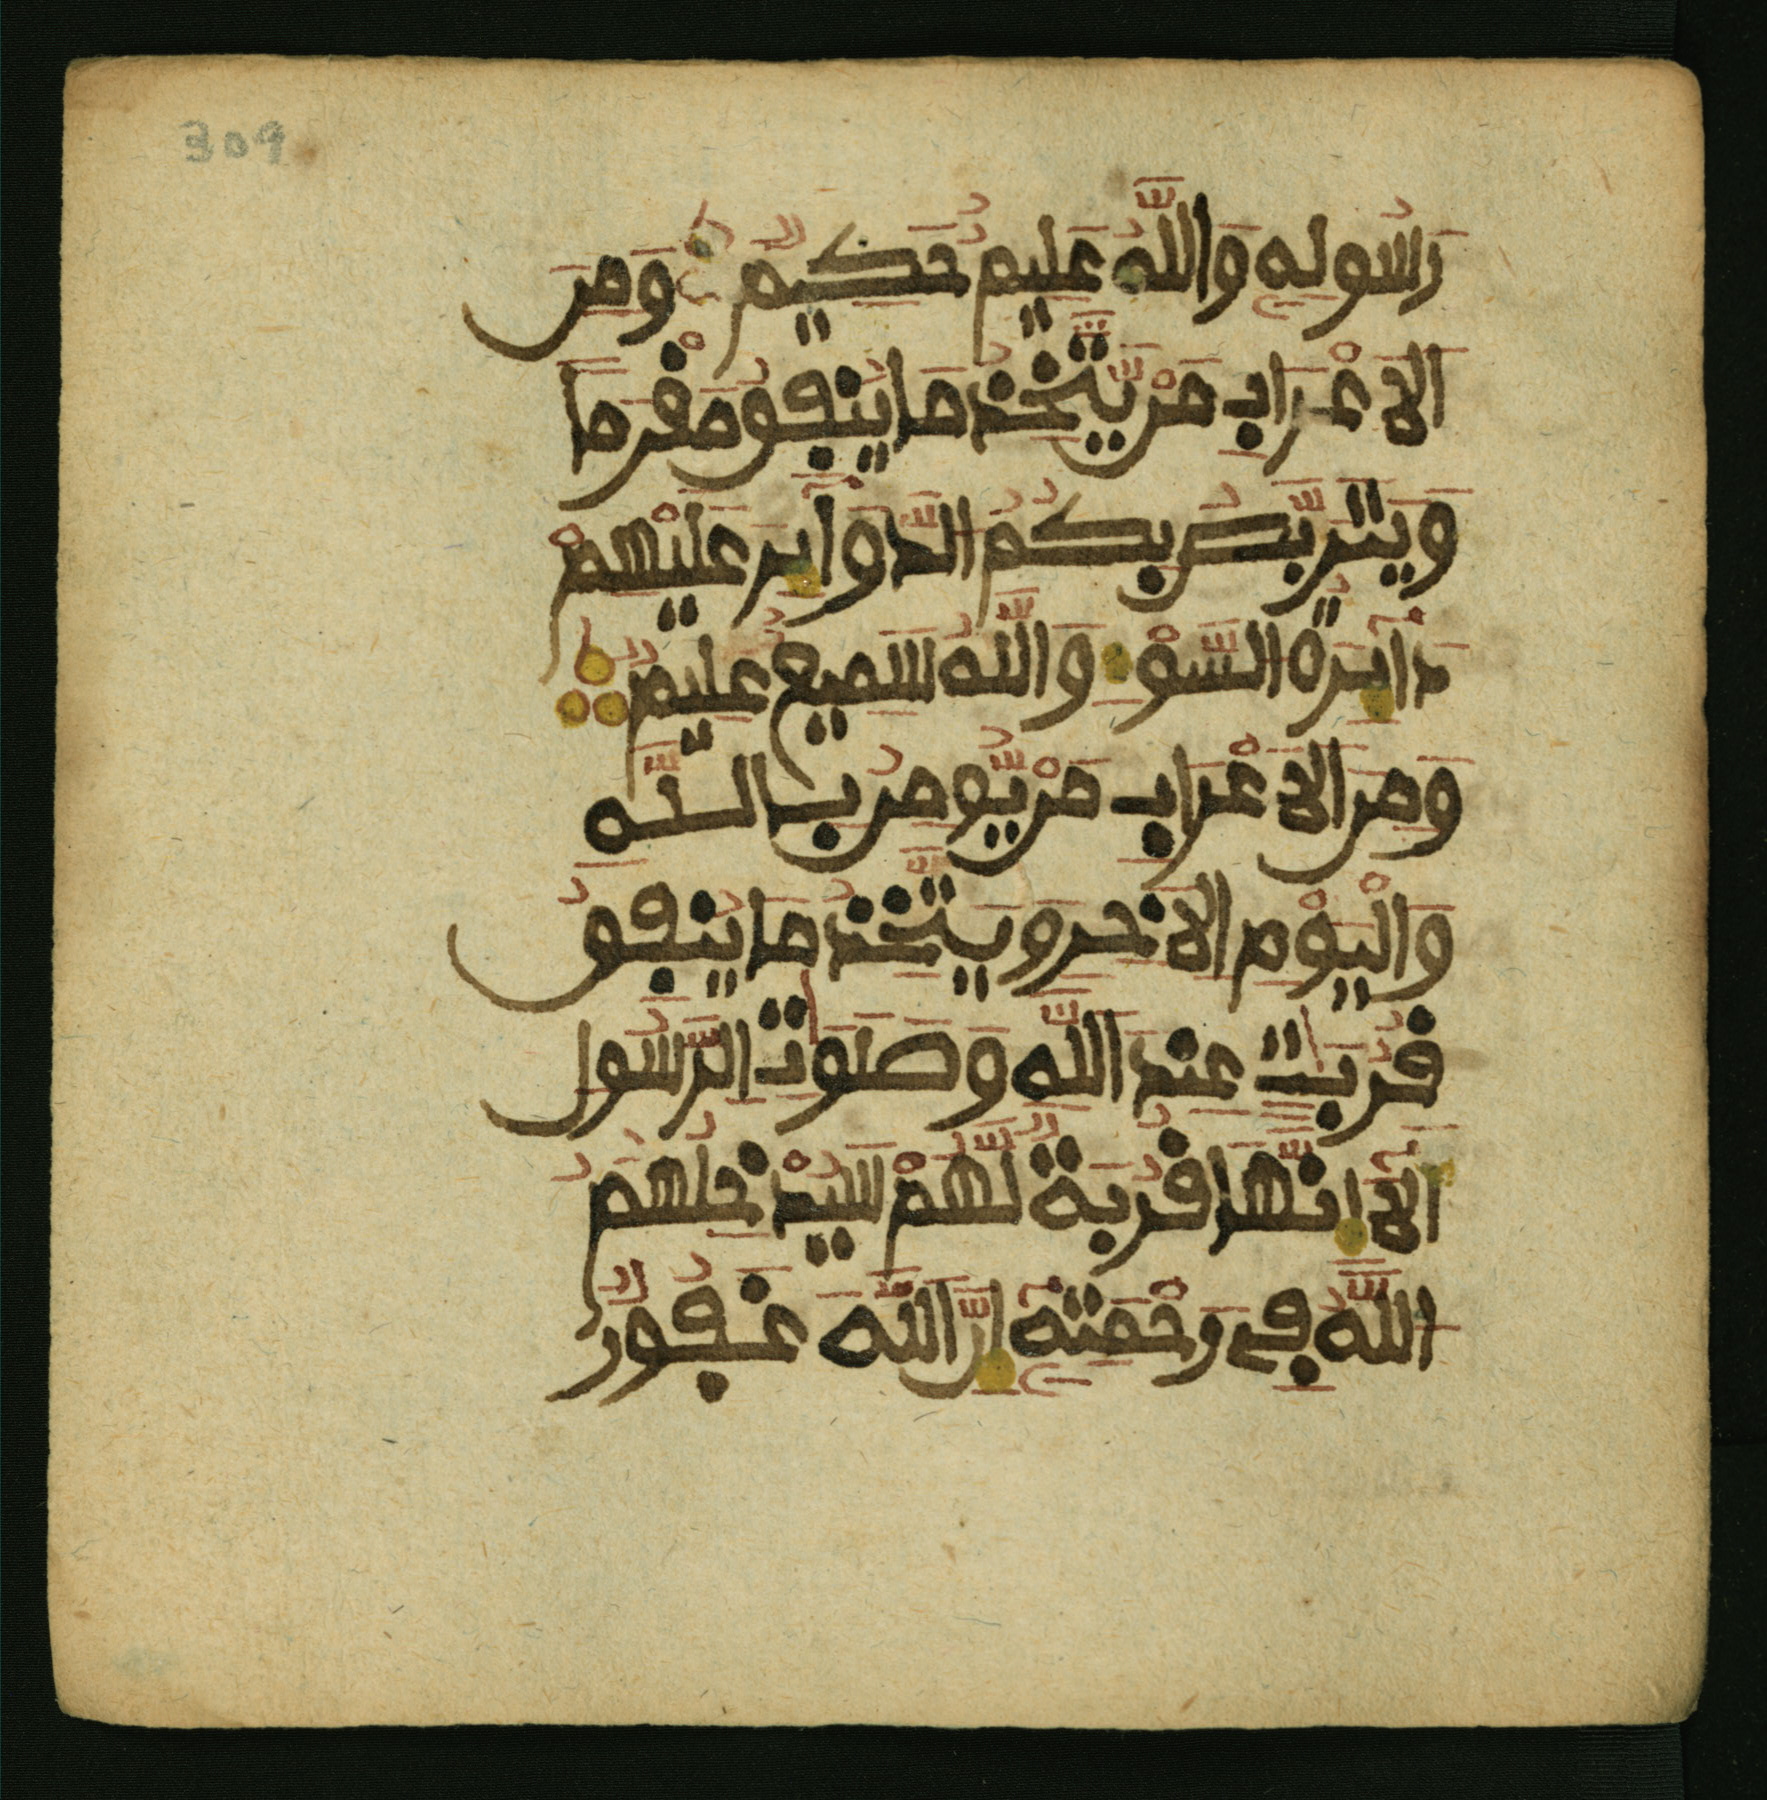 309
رَسُولِهِ وَاللَّهُ عَلِيمٌ حَكِيمٌ وَمِنَ
الاَعْرَابِ مَنْ يَّتَّخِذُ مَا يُنفِقُ مَغْرَمًا
وَيَتَرَبَّصُ بِكُمُ الدَّوَآئِرَ عَلَيْهِمْ
دَآئِرَةُ السَّوْءِ وَاللَّهُ سَمِيعٌ عَلِيمٌ
وَمِنَ الاَعْرَابِ مَنْ يُّومِنُ بِاللَّهِ
وَالْيَوْمِ الاَخِرِ وَيَتَّخِذُ مَا يُنفِقُ
قُرُبَٰتٍ عِندَ اللَّهِ وَصَلَوَٰتِ الرَّسُولِ
أَلآَ إِنَّهَا قُرُبَةٌ لَّهُمْ سَيُدْخِلُهُمُ
اللَّهُ فِي رَحْمَتِهِ إِنَّ اللَّهَ غَفُورٌ